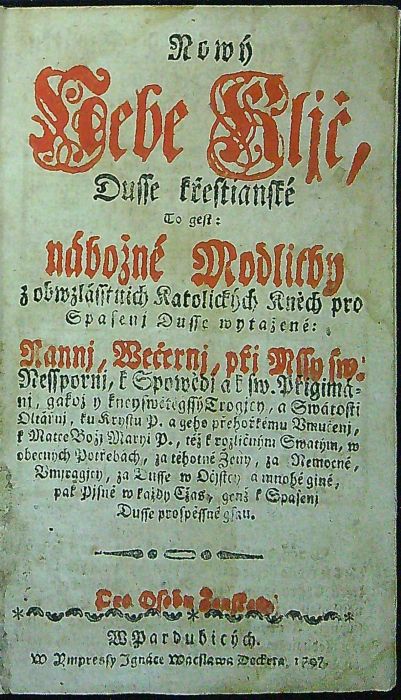 Nowý
Nebe Kljč,
Dusse křestianské
To gest:
nábožné Modlitby
z obwzlásstnich Katolických Kněh pro
Spasenj Dusse wytažené:
Rannj, Wečernj, při Mssy sw:
Nessporní, k Spowědi a k sw. Přigimá-
nj, gakož y kneyswětěgssý Trogjcy, a Swátosti
Oltářnj, ku Krystu P. a geho přehořkému Vmučenj,
k Matce Boží Maryi P., též k rozličným Swatým, w
obecných Potřebách, za těhotné Ženy, za Nemocné,
Vmjragjcý, za Dusse w Očjstcy a mnohé giné,
pak Pjsně w každý Čžas, genž k Spasenj
Dusse prospěssné gsau.
Pro Osobu Ženskau
W Pardubicých.
W Jmpressy Jgnáce Wáclawa Dekerta, 1797